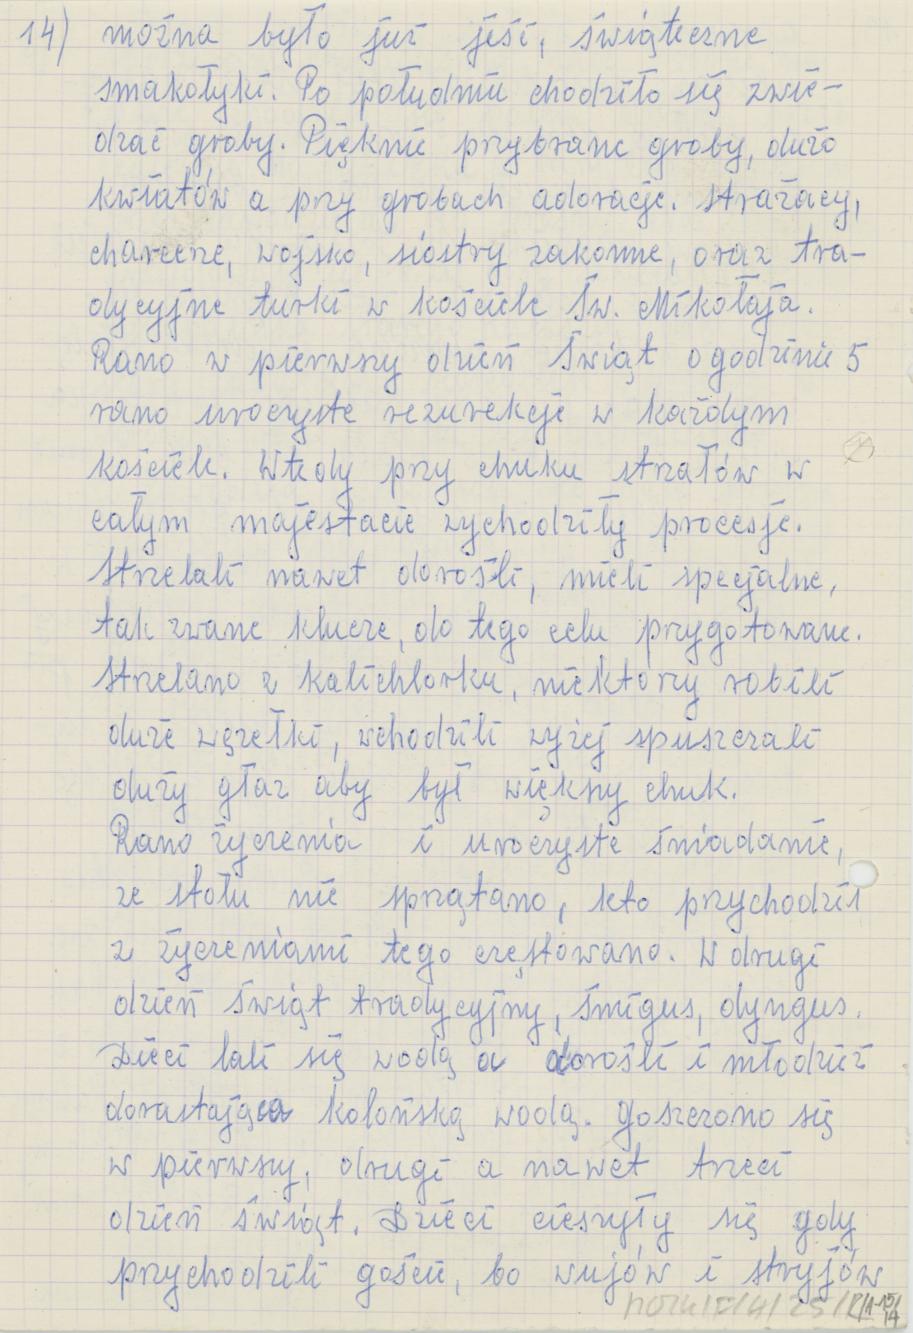 14) można było już jeść, świąteczne
smakołyki. Po południu chodziło się zwie-
dzać groby. Pięknie przybrane groby, dużo
kwiatów a przy grobach adoracje. Strażacy,
charcerze, wojsko, siostry zakonne, oraz tra-
dycyjne turki w kościele Św. Mikołaja.
Rano w pierwszy dzień Świąt o godzinie 5
rano uroczyste rezurekcje w każdym
kościele. Wtedy przy chuku strzałów w
całym majestacie wychodziły procesje.
Strzelali nawet dorośli, mieli specjalne,
tak zwane klucze, do tego celu przygotowane.
Strzelano z kalichlorku, niektórzy robili
duże węzełki, wchodzili wyżej spuszczali
duży głaz aby był większy chuk.
Rano życzenia i uroczyste śniadanie,
ze stołu nie sprzątano, kto przychodził
z życzeniami tego częstowano. W drugi
dzień świąt tradycyjny, śmigus, dyngus.
Dzieci lali się wodą a dorośli i młodzież
dorastająca kolońską wodą. Goszczono się
w pierwszy, drugi a nawet trzeci
dzień świąt. Dzieci cieszyły się gdy
przychodzili goście, bo wujów i stryjów